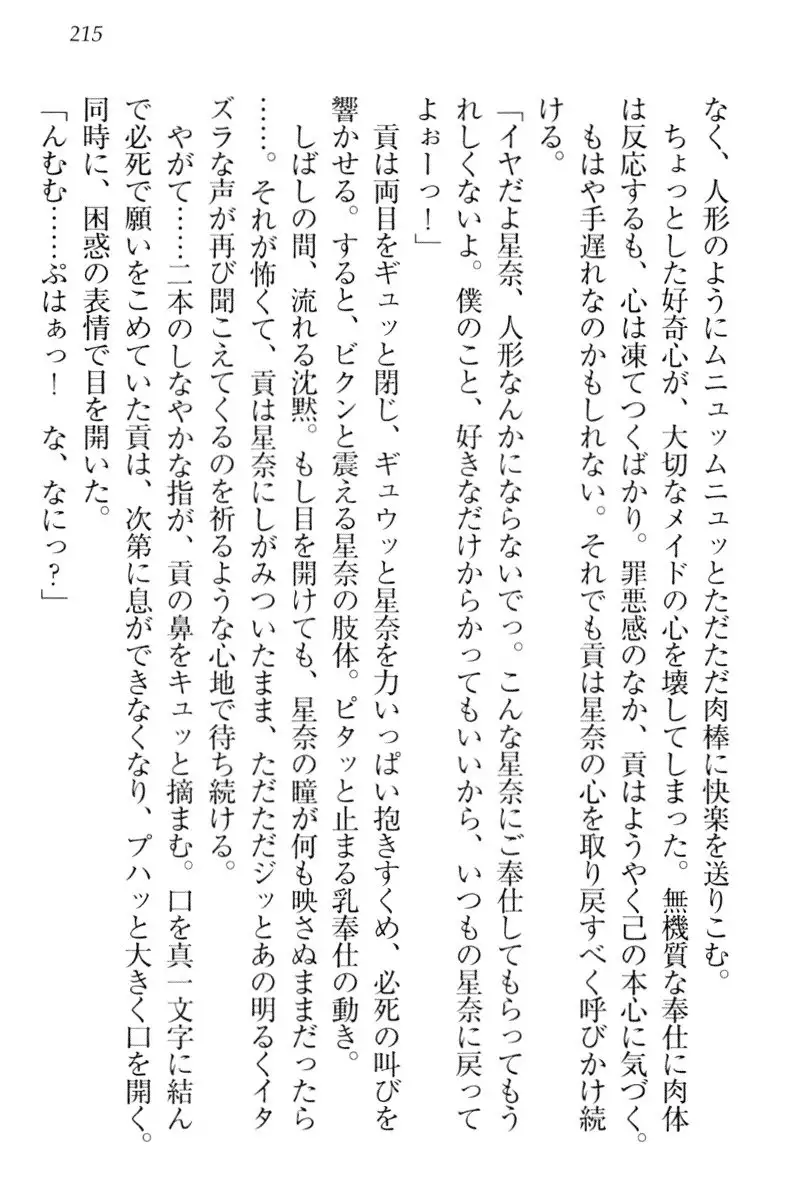 215
なく、人形のようにムニュッムニュッとただただ肉棒に快楽を送りこむ。
ちょっとした好奇心が、大切なメイドの心を壊してしまった。無機質な奉仕に肉体
は反応するも、心は凍てつくばかり。罪悪感のなか、貢はようやく己の本心に気づく。
もはや手遅れなのかもしれない。それでも貢は星奈の心を取り戻すべく呼びかけ続
ける。
「イヤだよ星奈、人形なんかにならないでっ。こんな星奈にご奉仕してもらってもう
れしくないよ。僕のこと、好きなだけからかってもいいから、いつもの星奈に戻って
よぉーっ！」
貢は両目をギュッと閉じ、ギュウッと星奈を力いっぱい抱きすくめ、必死の叫びを
響かせる。すると、ビクンと震える星奈の肢体。ピタッと止まる乳奉仕の動き。
しばしの間、流れる沈黙。もし目を開けても、星奈の瞳が何も映さぬままだったら
……。それが怖くて、貢は星奈にしがみついたまま、ただただジッとあの明るくイタ
ズラな声が再び聞こえてくるのを祈るような心地で待ち続ける。
やがて……二本のしなやかな指が、貢の鼻をキュッと摘まむ。口を真一文字に結ん
で必死で願いをこめていた貢は、次第に息ができなくなり、プハッと大きく口を開く。
同時に、困惑の表情で目を開いた。
「んむむ……ぷはぁっ！　な、なにっ？」